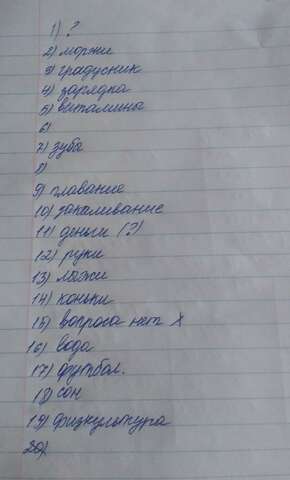 1) ?
2) моржи
3) градусник
4) зарядка
5) витамины
6)
7) зуба
8)
9) плавание
10) закаливание
11) деньги (?)
12) руки
13) лыжи
14) коньки
15) вопроса нет X
16) вода
17) футбол.
18) сон
19) физкультура
20)